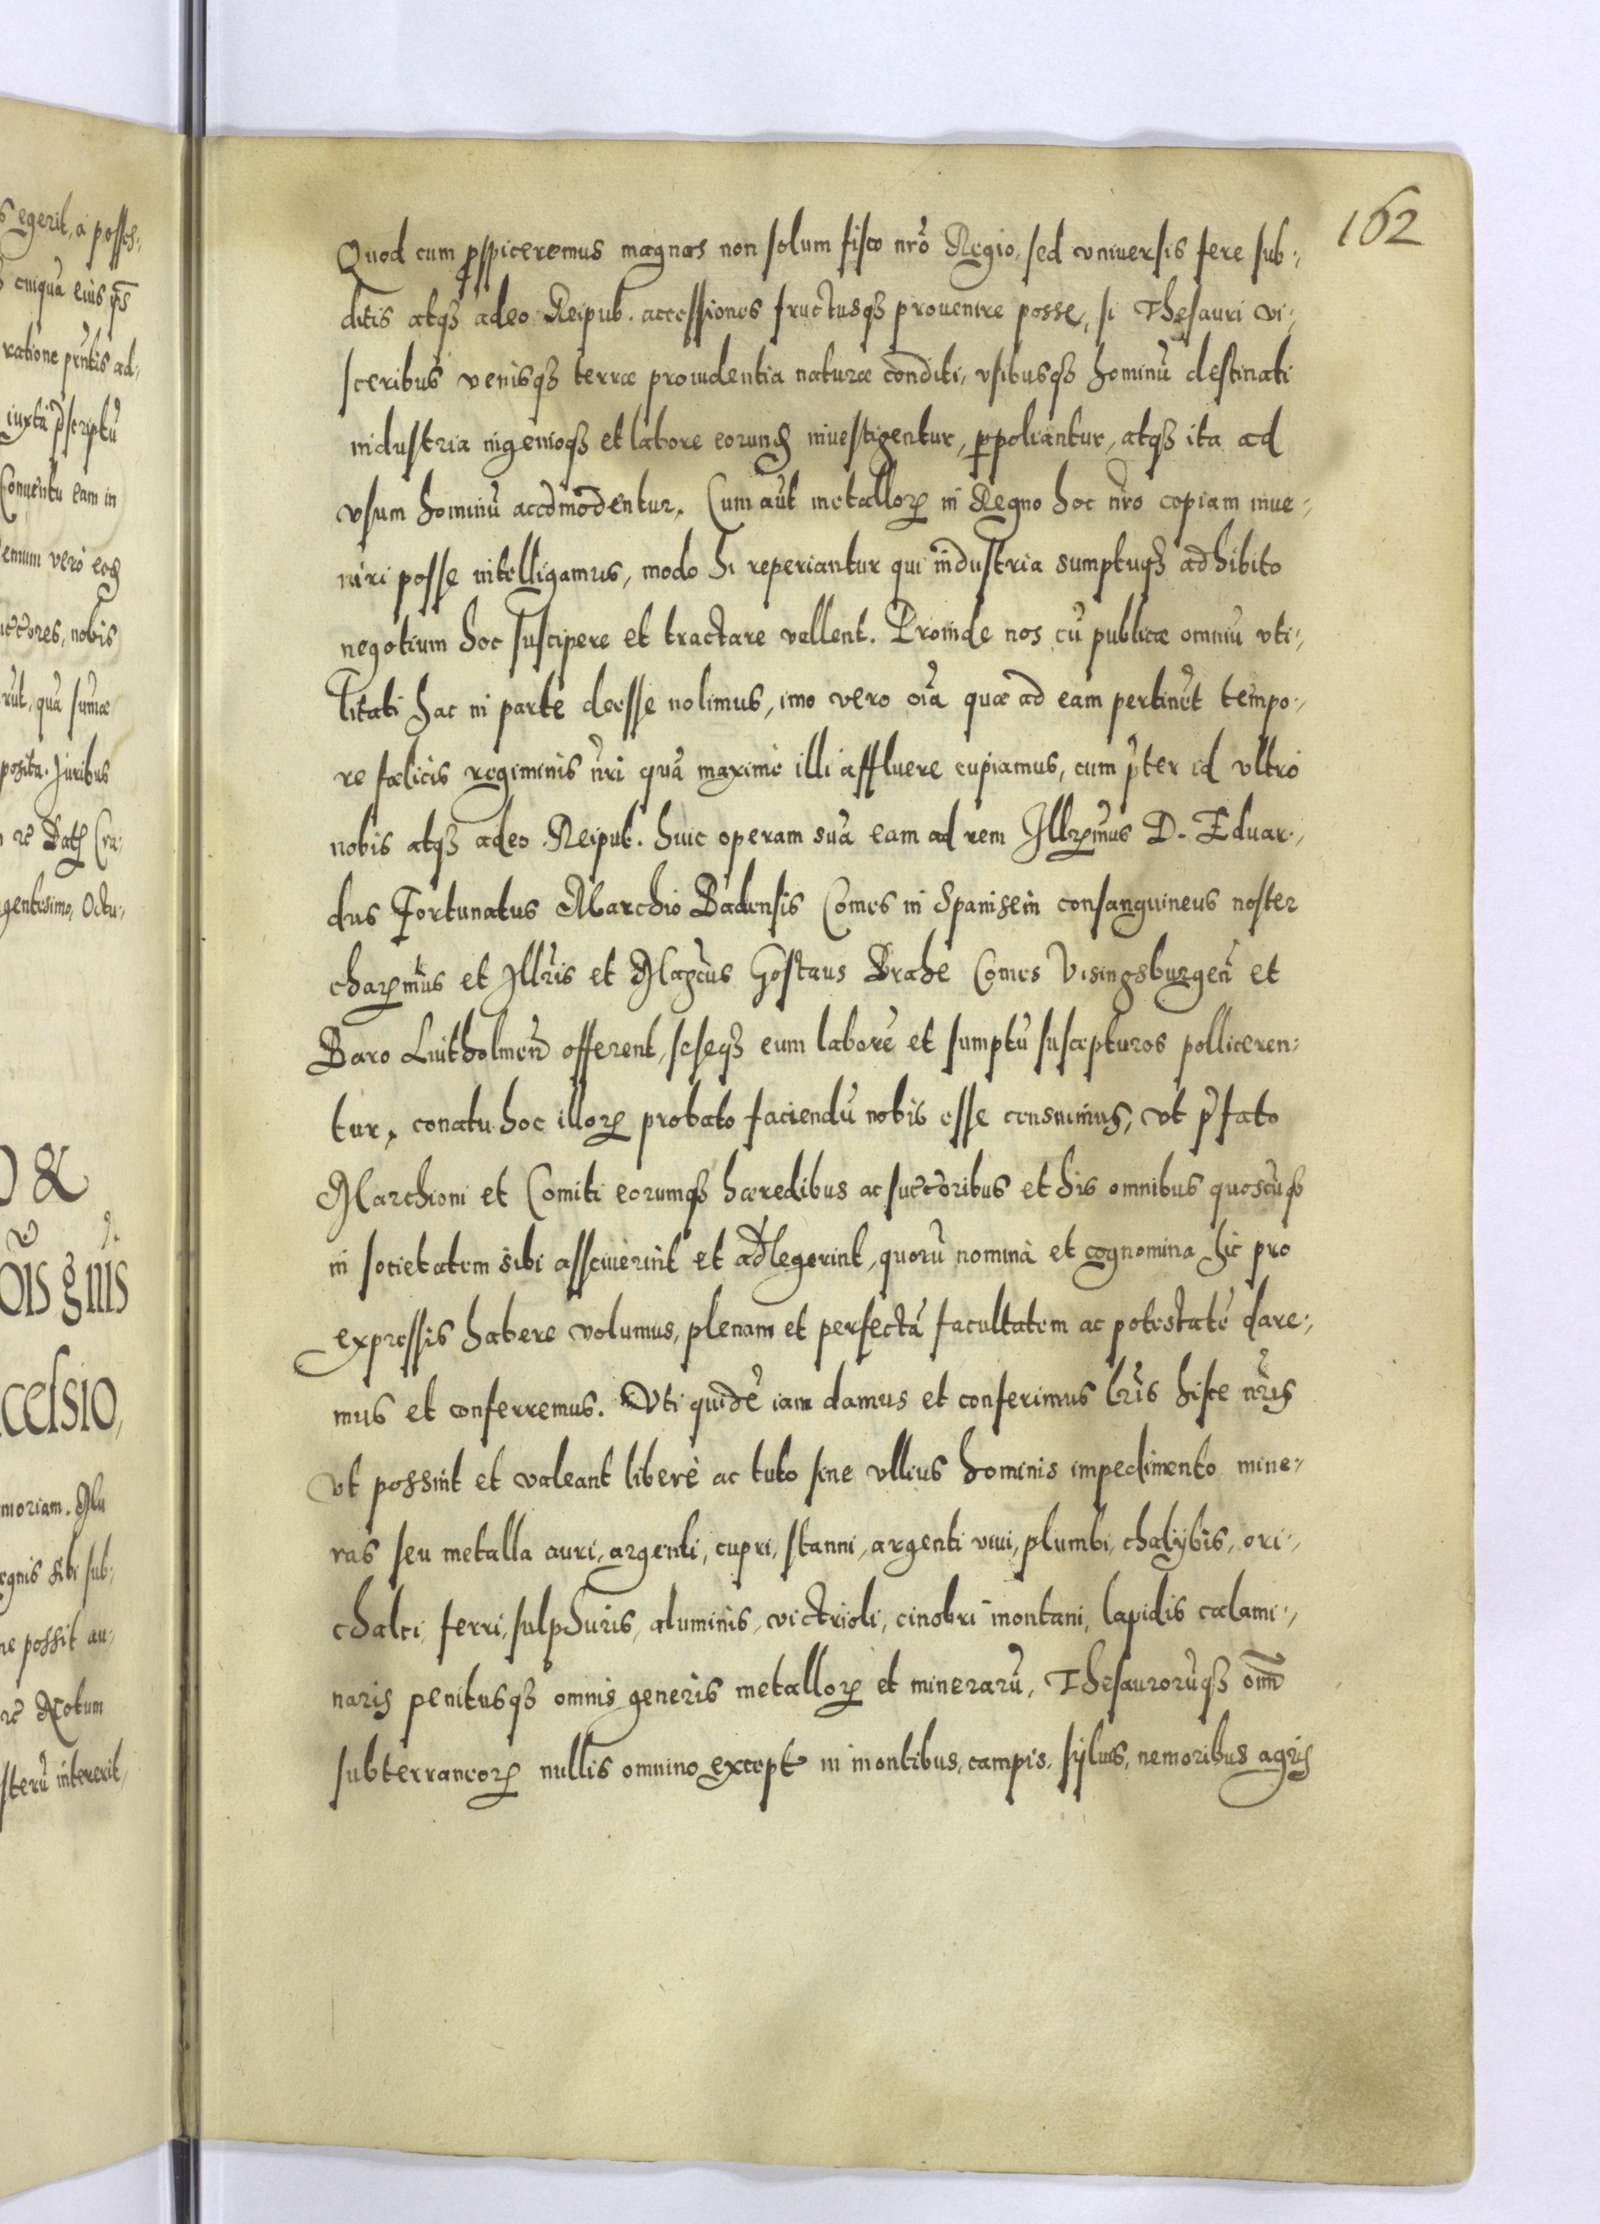 162
Quod cum ꝑspiceremus magnas non solum fisco nr̃o Regio, sed vniuersis fere sub-
ditis atqꝫ adeo Reipub. accessiones fructusqꝫ prouenire posse, si Thesauri vi-
sceribus venisqꝫ terræ prouidentia naturæ conditi, vsibusqꝫ hominũ destinati
industria ingenioqꝫ et labore eorundẽ inuestigentur, ꝑpoliantur, atqꝫ ita ad
vsum hominũ accõmodentur. Cum aũt metalloꝝ in Regno hoc nr̃o copiam inue-
niri posse intelligamus, modo hi reperiantur qui industria sumptuqꝫ adhibito
negotium hoc suscipere et tractare vellent. Proinde nos cũ publicæ omniũ vti-
litati hac in parte deesse nolimus, imo vero oĩa quæ ad eam pertinẽt tempo-
re fælicis regiminis nr̃i quã maximè illi affluere cupiamus, cum p̃ter id vltrò
nobis atqꝫ adeo Reipub. huic operam suã eam ad rem Illꝛmus D. Eduar-
dus Fortunatus Marchio Badensis Comes in Spanhein consanguineus noster
chaꝝmus et Illr̃is et Mag̃cus Gostaus Brahe Comes Visingsburgeñ et
Baro Luitholmeñ offerent, seseqꝫ eum laborẽ et sumptũ suscepturos polliceren-
tur, conatu hoc illoꝝ probato faciendũ nobis esse censuimus, vt p̃fato
Marchioni et Comiti eorumqꝫ hæredibus ac succ̃oribus et his omnibus quoscũqꝫ
in societatem sibi assciuerint et adlegerint, quorũ nomina et cognomina hic pro
expressis habere volumus, plenam et perfectã facultatem ac potestatẽ dare-
mus et conferremus. Vti quidẽ iam damus et conferimus lr̃is hisce nr̃is
vt possint et valeant liberè ac tuto sine vllius hominis impedimento mine-
ras seu metalla auri, argenti, cupri, stanni, argenti viui, plumbi, chalybis, ori-
chalci, ferri, sulphuris, aluminis, victrioli, cinobri montani, lapidis calami-
naris penitusqꝫ omnis generis metalloꝝ et minerarũ, Thesaurorũqꝫ om̃
subterraneoꝝ nullis omnino except in montibus, campis, syluis, nemoribus agris